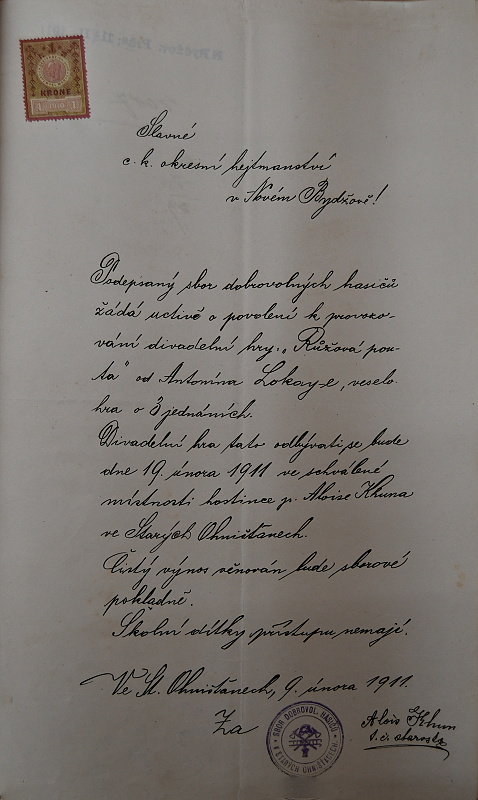 KRONE
1 1910 1
Slavné
c. k. okresní hejtmanství
v Novém Bydžově!
Podepsaný sbor dobrovolných hasičů
žádá uctivě o povolení k provozo-
vání divadelní hry „Růžová pou-
ta" od Antonína Lokay-e, veselo-
hra o 3 jednáních.
Divadelní hra tato odbývati se bude
dne 19. února 1911 ve schválené
místnosti hostince p. Aloise Khuna
ve Starých Ohništanech.
Čistý výnos věnován bude sborové
pokladně.
Školní dítky přístupu nemají.
Ve St. Ohništanech, 9. února 1911.
Za
SBOR DOBROVOL. HASIČŮ
V STARÝCH OHNIŠŤANECH
Alois Khun
t. č. starosta